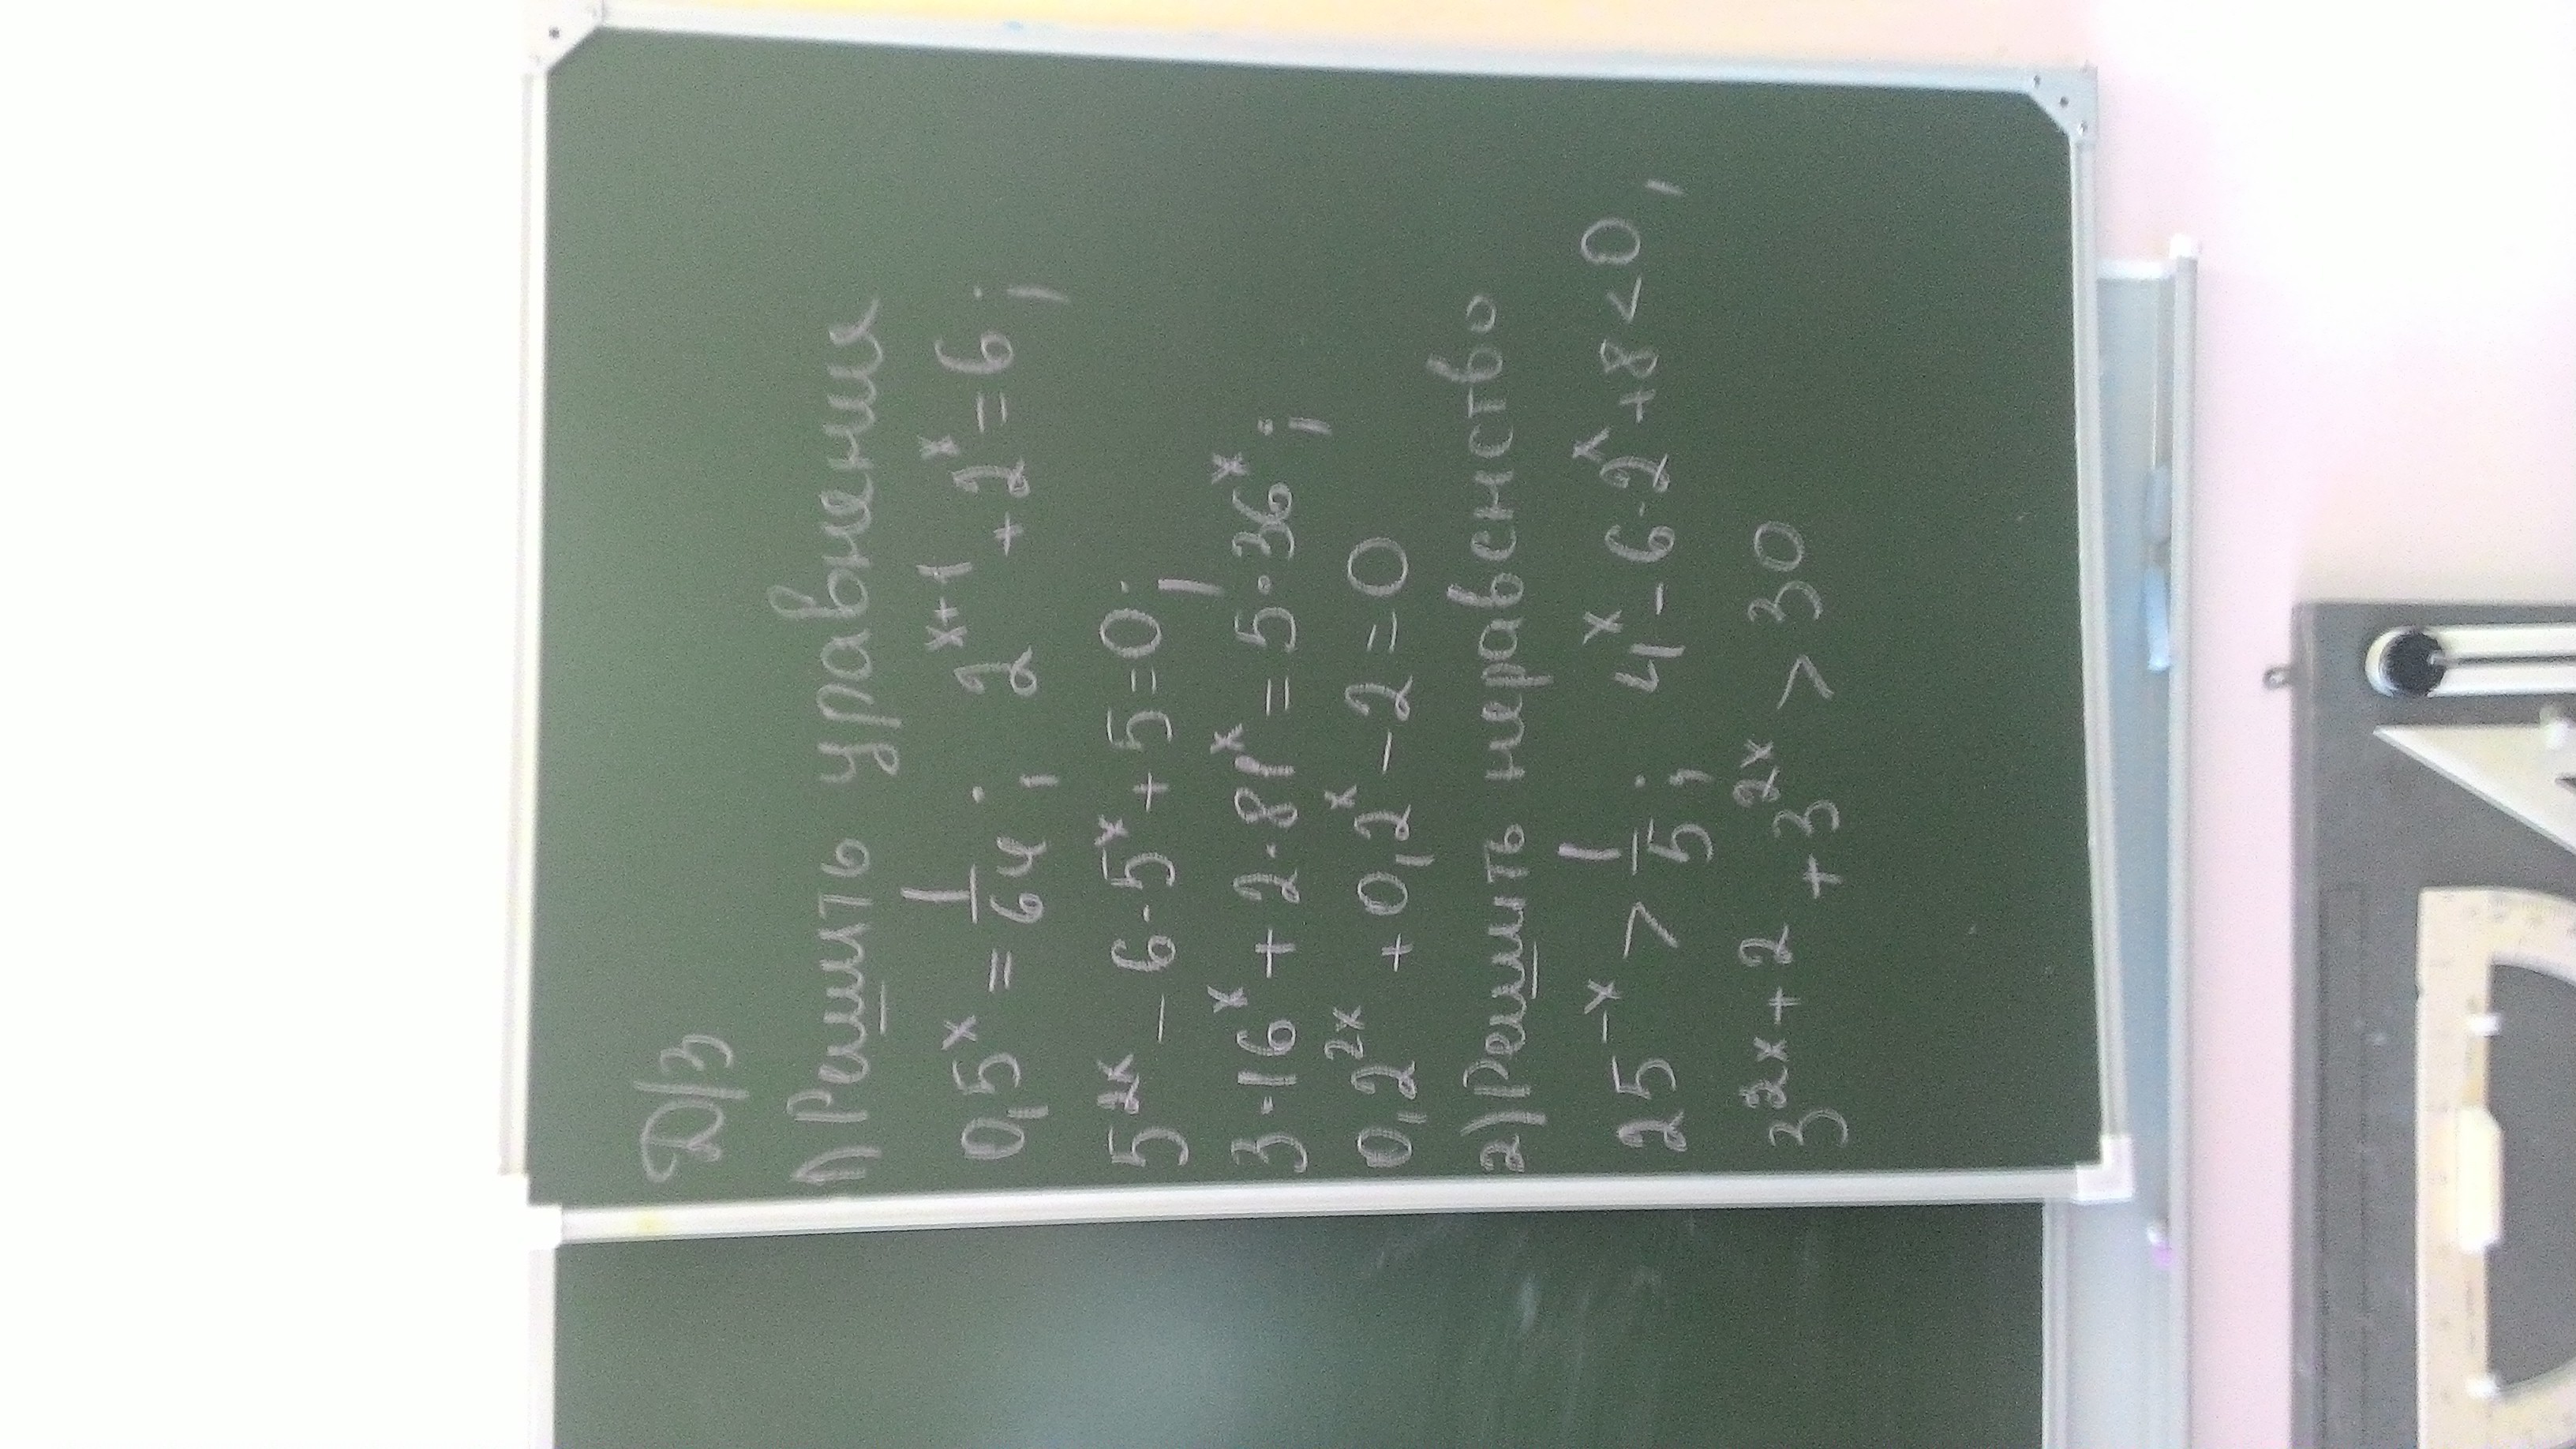 Д/З
1) Решить уравнения
0,5^x = 1/64; 2^(x+1) + 2^x = 6;
5^(2x) - 6·5^x + 5 = 0;
3·16^x + 2·81^x = 5·36^x;
0,2^(2x) + 0,2^x - 2 = 0
2) Решить неравенство
25^(-x) > 1/5; 4^x - 6·2^x + 8 < 0,
3^(2x+2) + 3^(2x) > 30